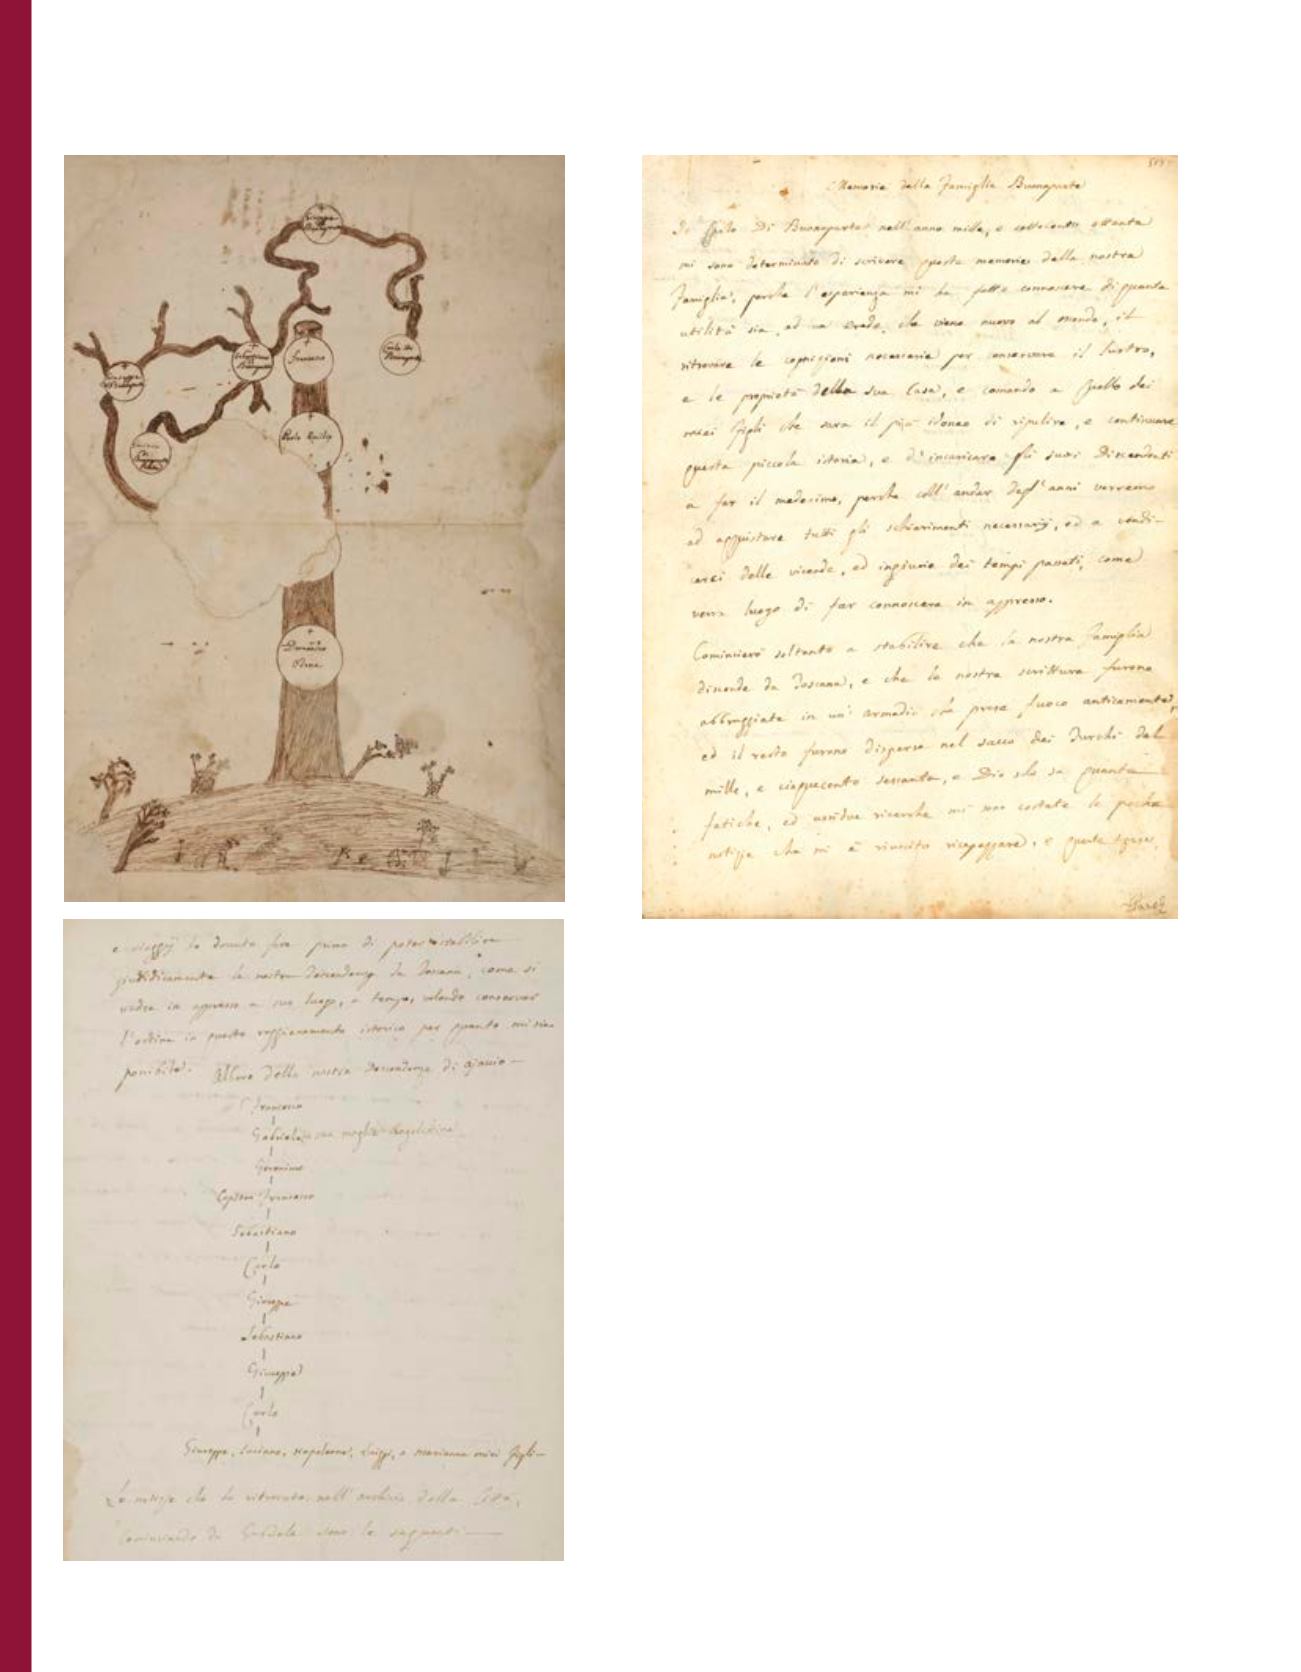 Francesco
Memorie della Famiglia Buonaparte
Io Di Buonaparte nell'anno mille, e settecento ottanta
mi sono determinato di scrivere queste memorie della nostra
Famiglia, perche l'esperienza mi ha fatto conoscere di quanta
utilità sia, ad un erede, che viene nuovo al mondo, il
ritrovare le cognizioni necessarie per conservare il lustro,
e le proprietà della sua Casa, e comando a quello dei
miei figli che sara il più idoneo di ripulire, e continuare
questa piccola istoria, e d'incaricare gli suoi Discendenti
a far il medesimo, perche coll'andar degl'anni verremo
ad acquistare tutti gli schiarimenti necessarij, ed a vendi-
carci delle vicende, ed ingiurie dei tempi passati, come
verra luogo di far conoscere in appresso.
Cominciero soltanto a stabilire che la nostra Famiglia
discende da Toscana, e che le nostre scritture furono
abbruggiate in un' armadio che prese fuoco anticamente,
ed il resto furono disperse nel sacco dei Turchi del
mille, e cinquecento sessanta, e Dio solo sa quante
fatiche, ed assidue ricerche mi sono costate le poche
notizie che mi è riuscito ricapezzare, e queste spese
e viaggij ho dovuto fare prima di poter stabilire
giuridicamente la nostra Descendenza da Toscana, come si
vedra in appresso a suo luogo, e tempo, volendo conservar
l'ordine in questo raggionamento istorico per quanto mi sia
possibile. Albero della nostra Descendenza di ajaccio
Francesco
Gabriele sua moglie
Geronimo
Capitan Francesco
Sebastiano
Carlo
Giuseppe
Sebastiano
Giuseppe
Carlo
Giuseppe, Luciano, Napoleone, Luiggi, e Marianna miei figli
Le notizie che ho ritrovate nell'archivio della Città,
cominciando da Gabriele sono le seguenti